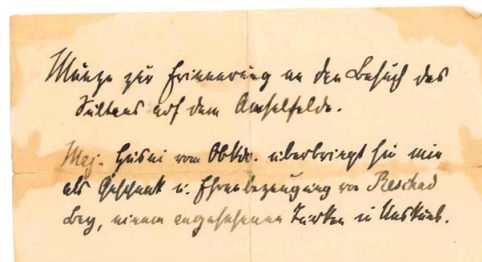 Münze zur Erinnerung an den Besuch des
Sultans auf dem Amselfelde.
Maj. Hüsni vom ObKdo. überbringt sie mir
als Geschenk u. Ehrenbezeugung von Reschad
Bey, einem angesehenen Türken in Uesküb.